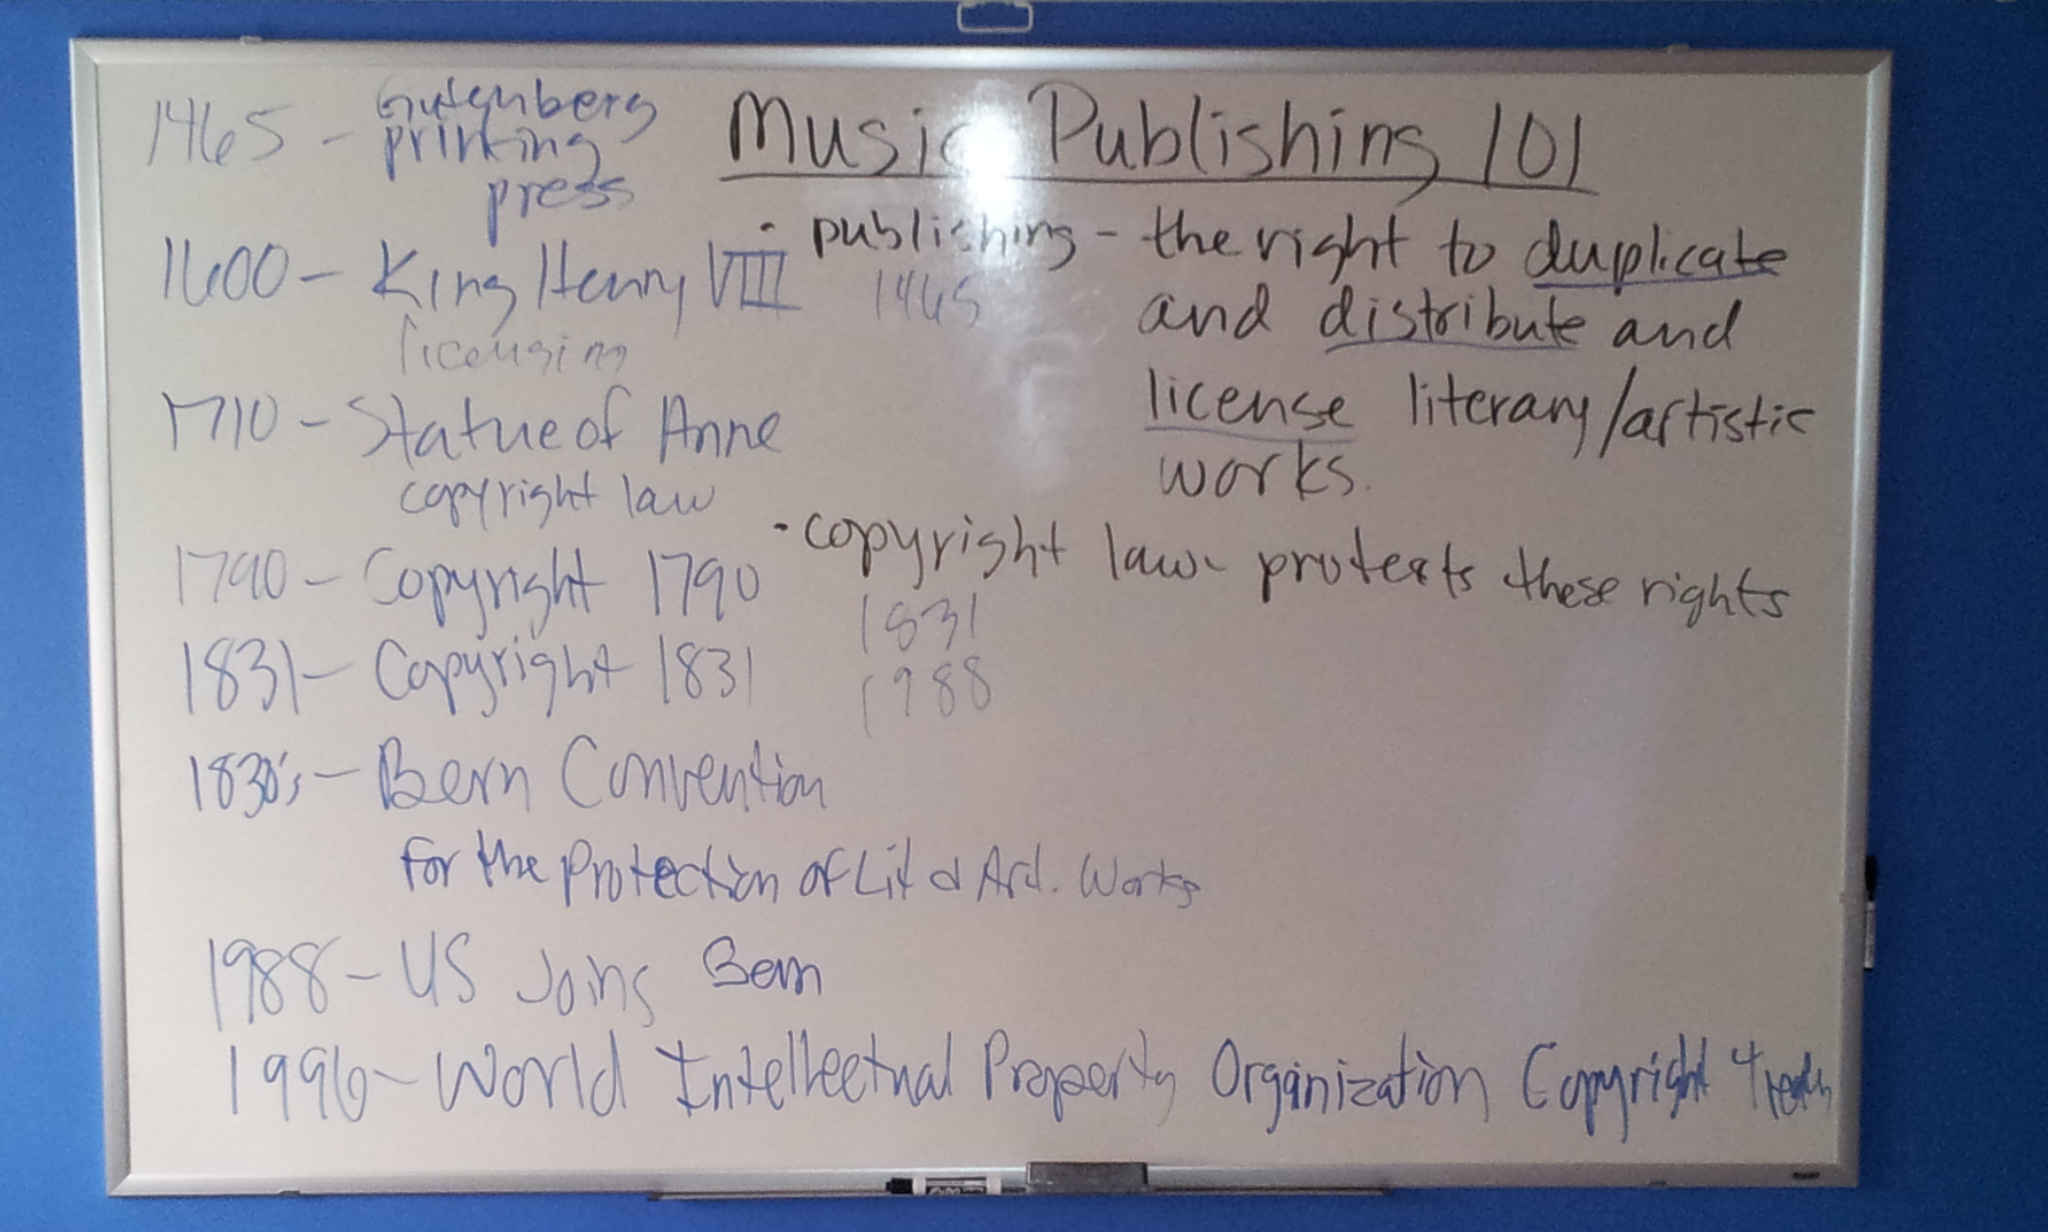 Music Publishing 101
1465 - Gutenberg
printing
press
1600 - King Henry VIII
licensing
1710 - Statue of Anne
copyright law
1790 - Copyright 1790
1831 - Copyright 1831
1830's - Bern Convention
for the Protection of Lit & Art. Works
1988 - US Joins Bern
1996 - World Intellectual Property Organization Copyright Treaty
• publishing - the right to duplicate
1465
and distribute and
license literary/artistic
works.
• copyright law - protects these rights
1831
1988